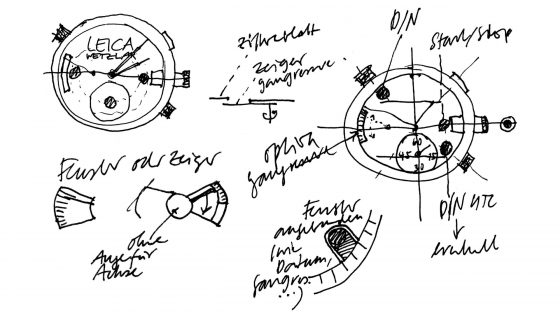 LEICA
WETZLAR
Zifferblatt
Zeiger
gangreserve
D/N
Start/Stop
option
gangreserve
60
45 15
30
Fenster oder Zeiger
ohne
Auge für
Achse
Fenster
Datum,
D/N UTC